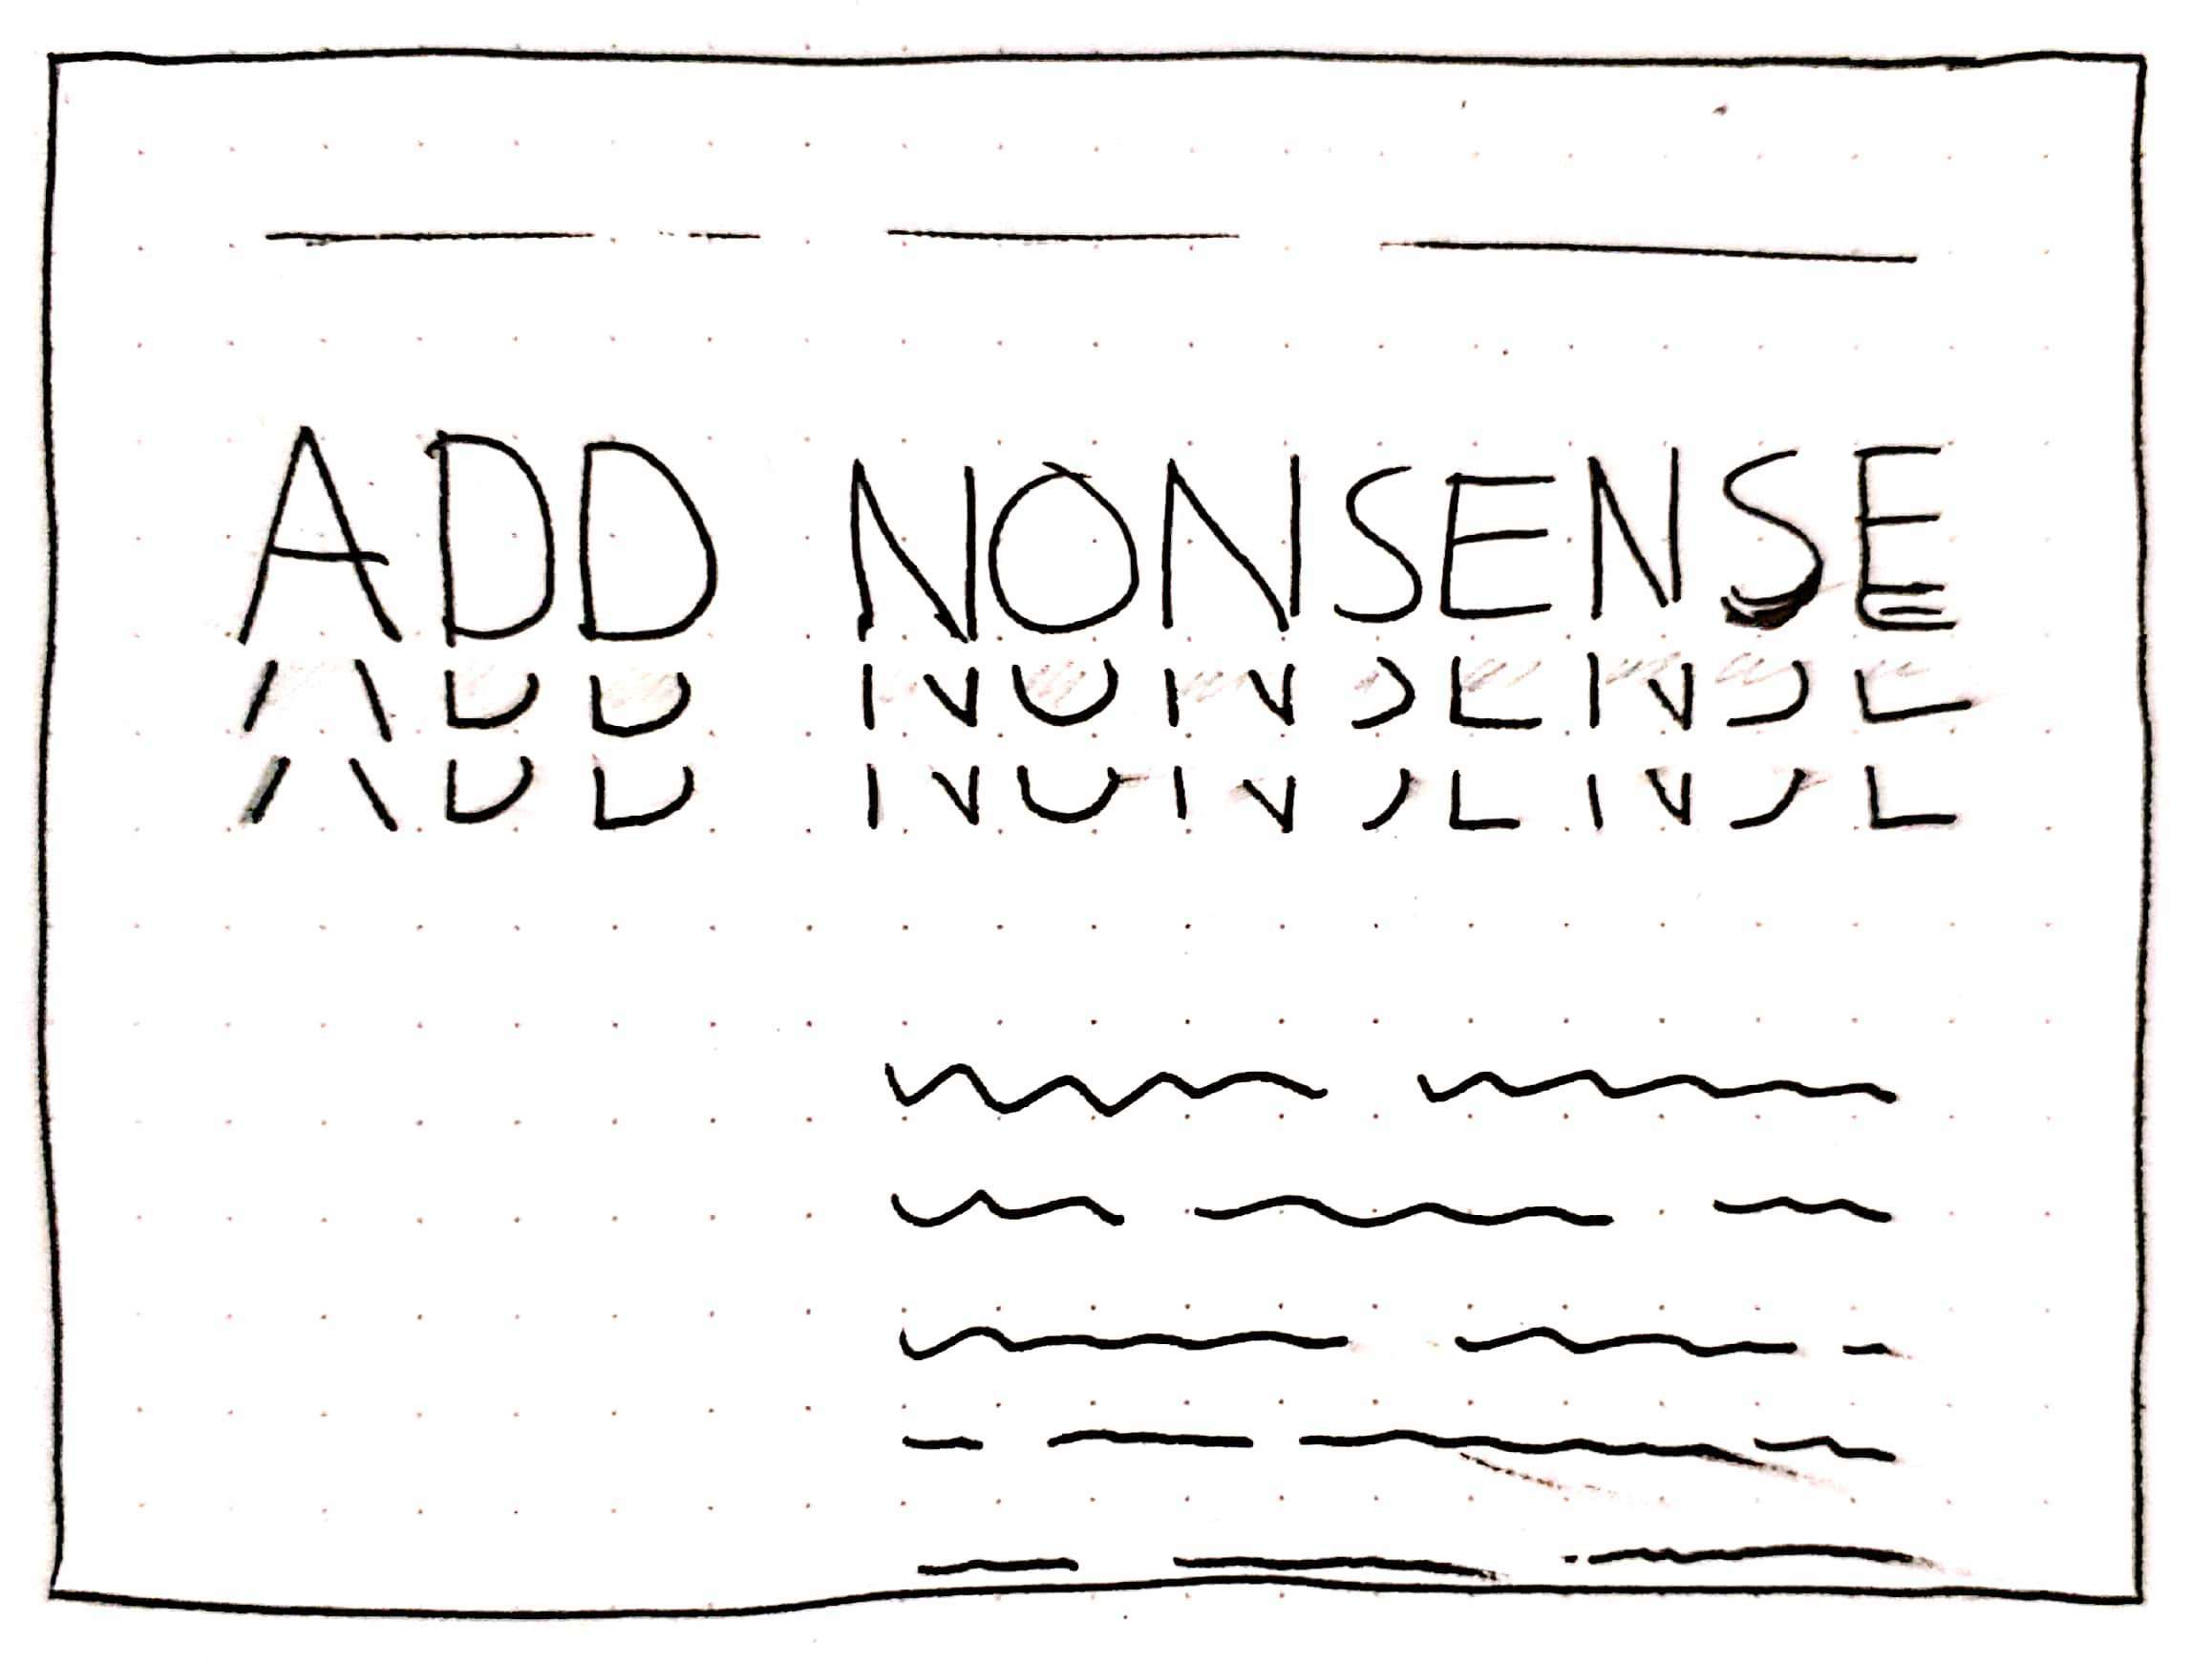 ADD NONSENSE